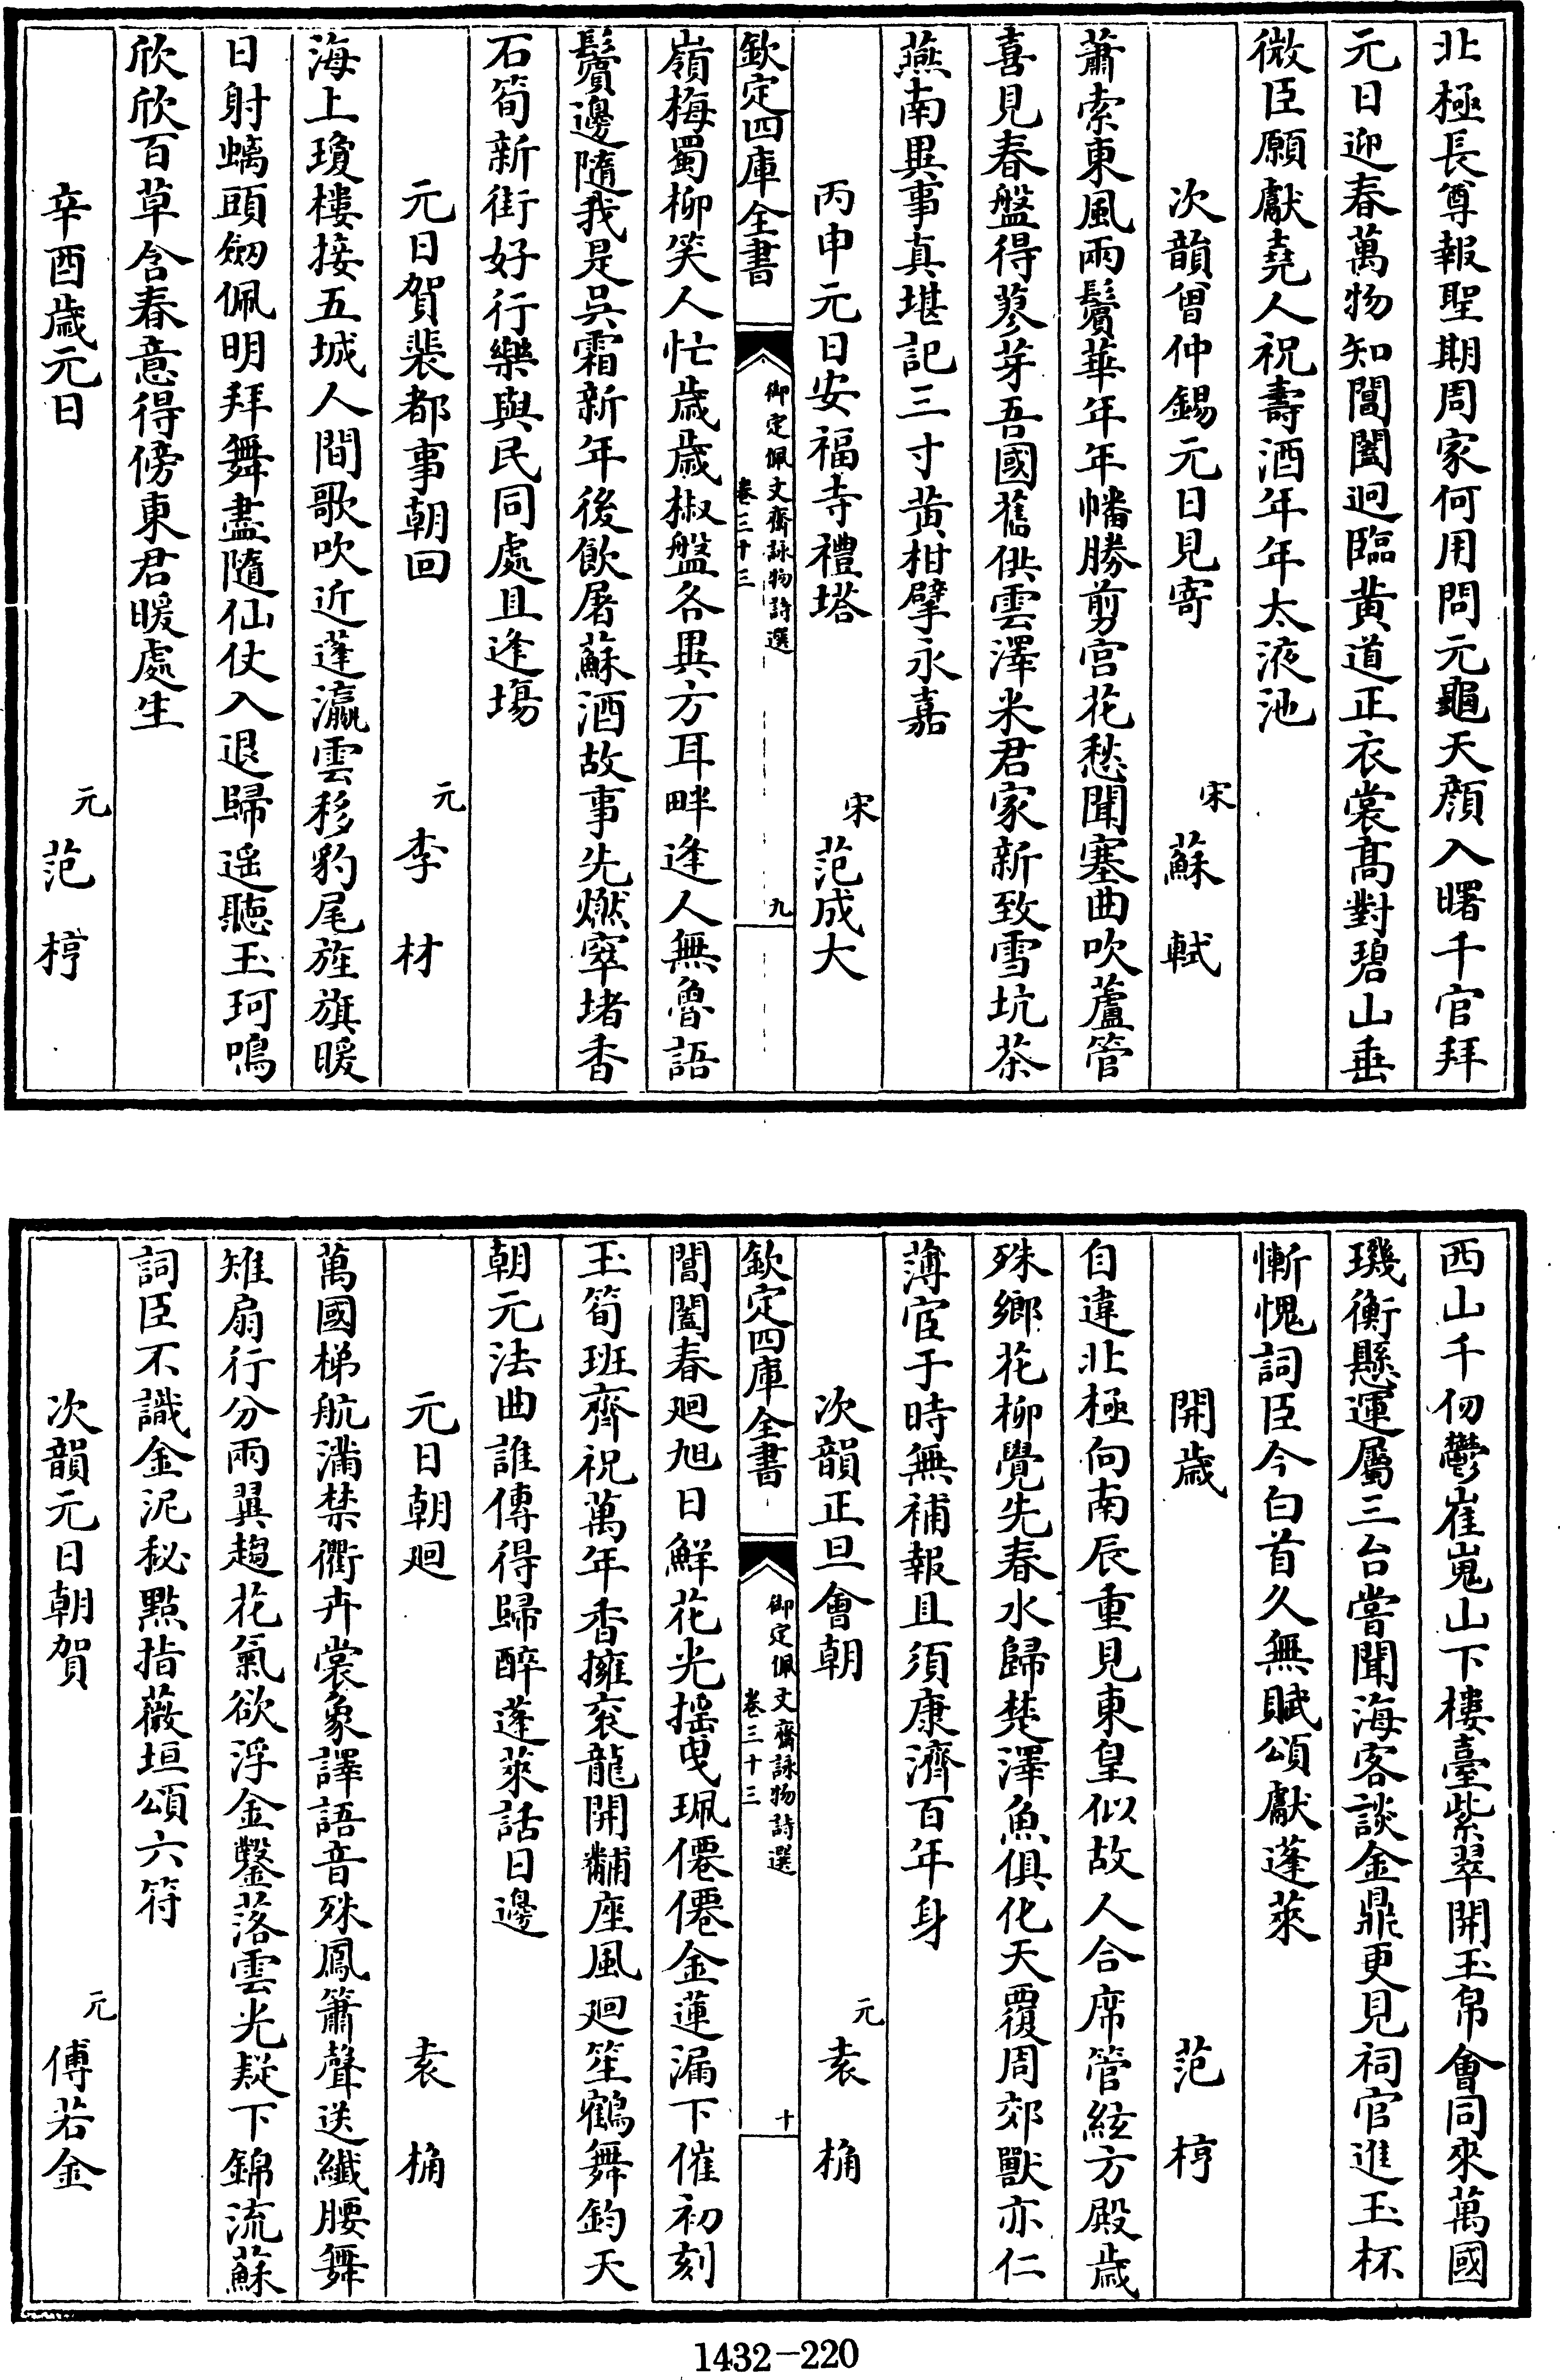 北極長尊報聖期周家何用問元龜天顔入曙千官拜
元日迎春萬物知閶闔迥臨黄道正衣裳髙對碧山垂
微臣願獻堯人祝壽酒年年太液池
次韻曾仲錫元日見寄 宋 蘇軾
蕭索東風兩鬢華年年幡勝剪宫花愁聞塞曲吹蘆管
喜見春盤得蓼芽吾國舊供雲澤米君家新致雪坑茶
燕南異事真堪記三寸黄柑擘永嘉
丙申元日安福寺禮塔 宋 范成大
欽定四庫全書 御定佩文齋詠物詩選 卷三十三 九
嶺梅蜀柳笑人忙歳歳椒盤各異方耳畔逢人無魯語
鬢邊隨我是吳霜新年後飲屠蘇酒故事先燃窣堵香
石筍新街好行樂與民同處且逢塲
元日賀裴都事朝回 元 李材
海上瓊樓接五城人間歌吹近蓬瀛雲移豹尾旌旗暖
日射螭頭劒佩明拜舞盡隨仙仗入退歸遥聽玉珂鳴
欣欣百草含春意得傍東君暖處生
辛酉歳元日 元 范梈
西山千仞鬱崔嵬山下樓臺紫翠開玉帛會同來萬國
璣衡懸運屬三台嘗聞海客談金鼎更見祠官進玉杯
慚愧詞臣今白首久無賦頌獻蓬萊
開歳 范梈
自違北極向南辰重見東皇似故人合席管絃方殿歳
殊鄉花柳覺先春水歸楚澤魚俱化天覆周郊獸亦仁
薄宦于時無補報且須康濟百年身
次韻正旦會朝 元 袁桷
欽定四庫全書 御定佩文齋詠物詩選 卷三十三 十
閶闔春廻旭日鮮花光揺曵珮僊僊金蓮漏下催初刻
玉筍班齊祝萬年香擁衮龍開黼座風廻笙鶴舞鈞天
朝元法曲誰傳得歸醉蓬萊話日邊
元日朝廻 袁桷
萬國梯航滿禁衢卉裳象譯語音殊鳳簫聲送纎腰舞
雉扇行分兩翼趨花氣欲浮金鑿落雲光疑下錦流蘇
詞臣不識金泥秘㸃指薇垣頌六符
次韻元日朝賀 元 傅若金
1432-220